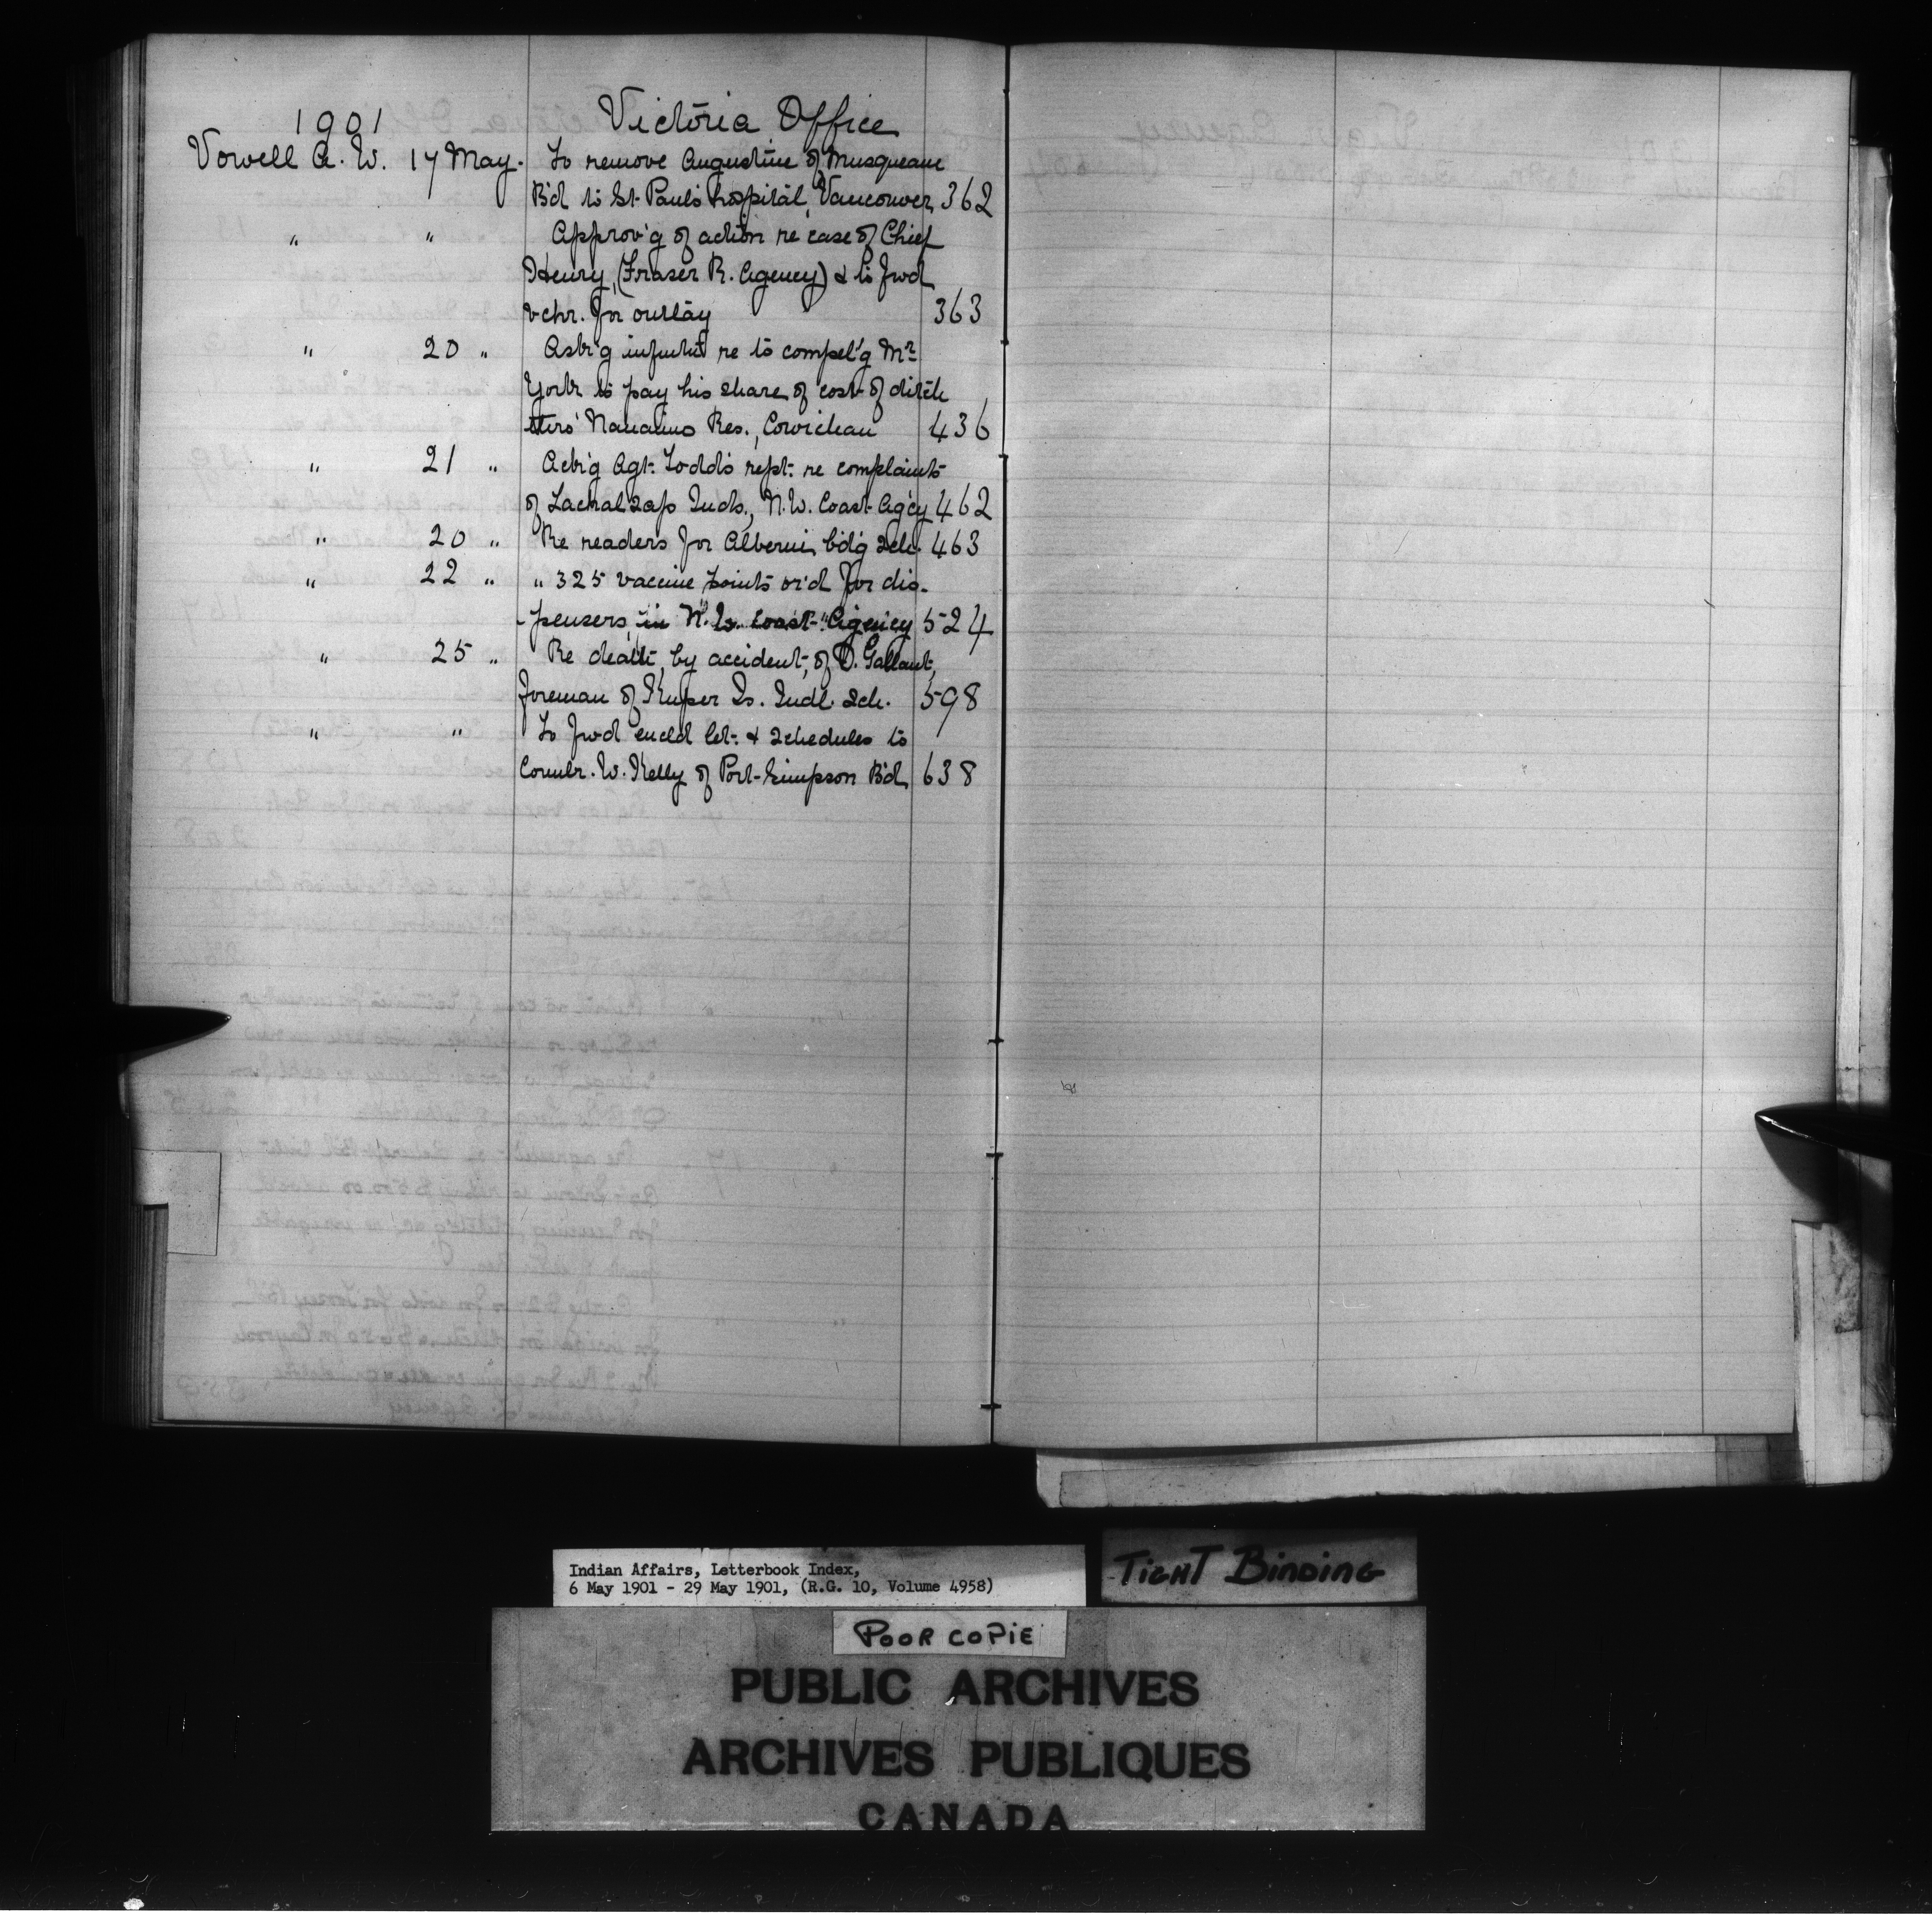 1901 Victoria Office
Vowell A. W. 17 May. To remove Augustine of Musqueam
B'd to St. Paul's hospital, Vancouver, 362
" " Approv'g of action re case of Chief
Henry, (Fraser R. Agency) & to fwd
vchr. for outlay 363
" 20 " Ask'g informt'n re to compel'g Mr
York to pay his share of cost of ditch
thro' Nanaimo Res., Cowichan 436
" 21 " Ack'g Agt. Todd's rept. re complaints
of Lachalzap Inds., N.W. Coast Ag'cy 462
" 20 " Re readers for Alberni b'd'g sch. 463
" 22 " " 325 vaccine points or'd for dis-
-pensers in "N.W. Coast" Agency 524
" 25 " Re death, by accident, of D. Gallant,
foreman of Kuper Is. Indl. Sch. 598
" " To fwd encl'd let. & schedules to
W. Kelly of Port Simpson B'd 638
Indian Affairs, Letterbook Index,
6 May 1901 - 29 May 1901, (R.G. 10, Volume 4958)
TIGHT BINDING
POOR COPIE
PUBLIC ARCHIVES
ARCHIVES PUBLIQUES
CANADA